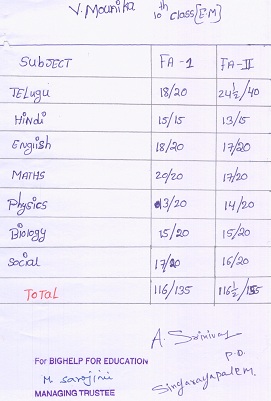 V. Mounika 10th class [E.M]
SubJECT FA-1 FA-II
TELugu 18/20 24½/40
Hindi 15/15 13/15
English 18/20 17/20
MATHS 20/20 17/20
Physics 13/20 14/20
Biology 15/20 15/20
Social 17/20 16/20
TOTAL 116/135 116½/155
A. Srinivas
P.O.
Singarayapalem.
For BIGHELP FOR EDUCATION
M. Sarojini
MANAGING TRUSTEE